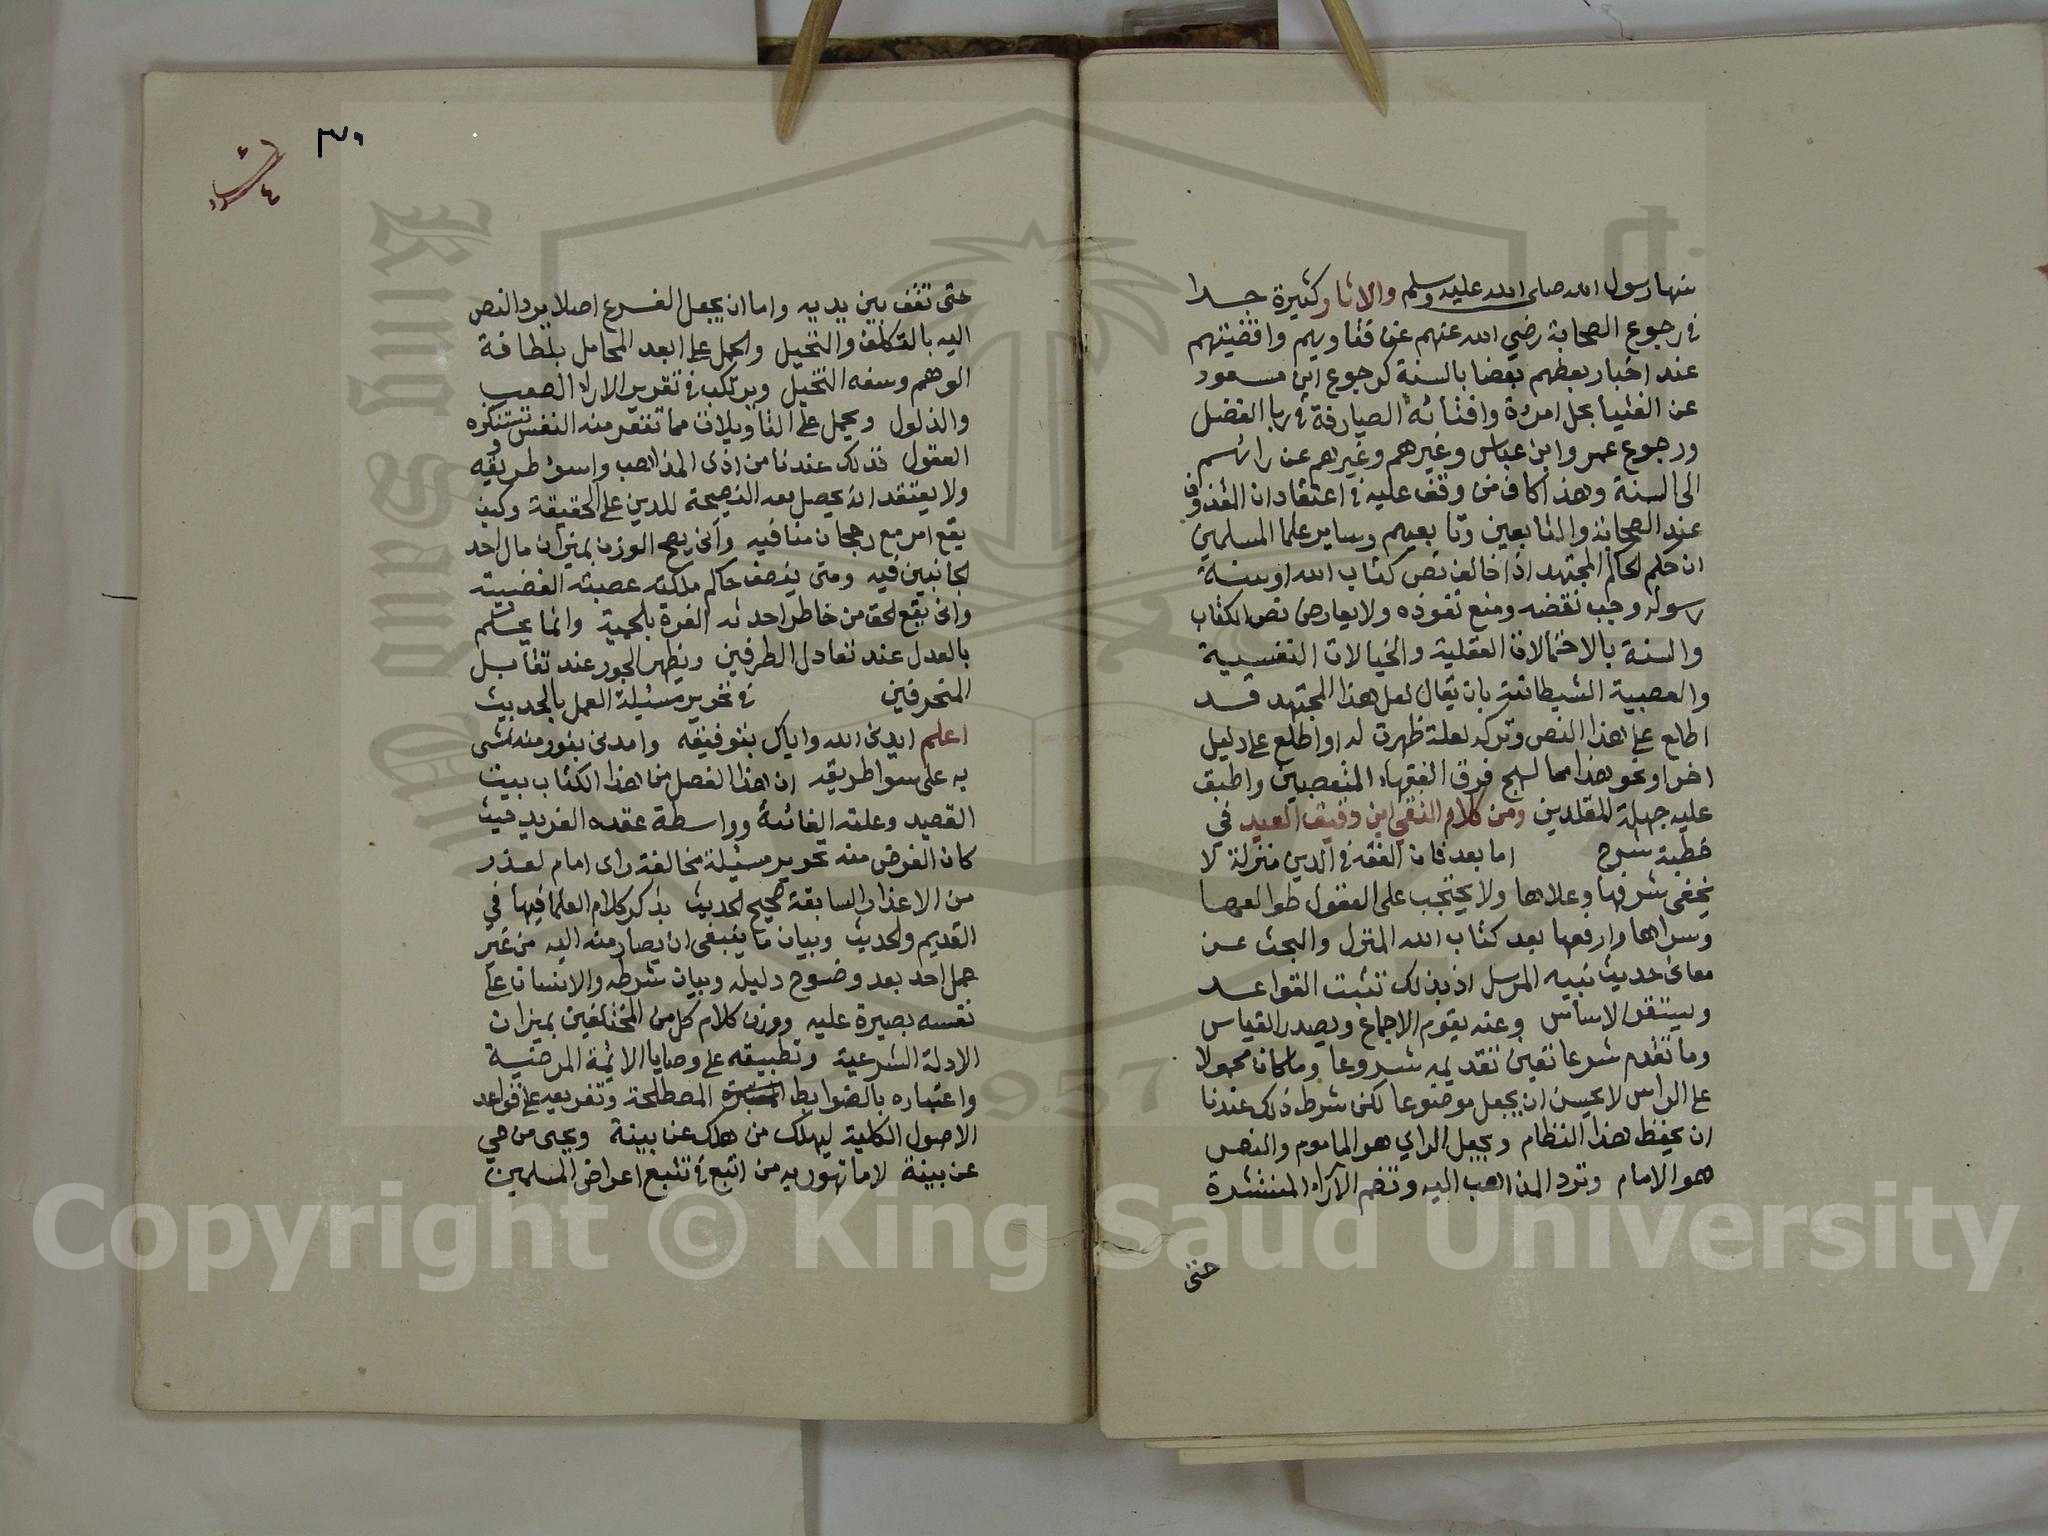 منها رسول الله صلى الله عليه وسلم والاثار كثيرة جدا
في رجوع الصحابة رضي الله عنهم عن فتاويهم واقضيتهم
عند اخبار بعضهم بعضا بالسنة كرجوع ابن مسعود
عن الفتيا بحل امرة وافتائه الصيارفة في ربا الفضل
ورجوع عمر وابن عباس وغيرهم وغيرهم عن رائهم
الى السنة وهذا كاف من وقف عليه في اعتقاد ان
عند الصحابة والتابعين وتابعيهم وساير علما المسلمين
ان حكم الحاكم المجتهد اذا خالف نص كتاب الله او سنة
رسوله وجب نقضه ومنع نفوذه ولا يعارض نص الكتاب
والسنة بالاحتمالات العقلية والخيالات النفسية
والعصبية الشيطانية بان يقال لعل هذا المجتهد قد
اطلع على هذا النص وتركه لعلة ظهرت له او اطلع على دليل
اخر او نحو هذا مما لهج فرق الفقهاء المتعصبين واطبق
عليه جهلة المقلدين ومن كلام التقي ابن دقيق العيد في
خطبة شرح اما بعد فان الفقه في الدين منزلة لا
يخفى شرفها وعلاها ولا يحتجب على العقول طوالعها
وسراها وارفعها بعد كتاب الله المنزل والبحث عن
معاني حديث نبيه المرسل اذ بذلك تثبت القواعد
ويستقر الاساس وعنه يقوم الاجماع ويصدر القياس
وما تقدم شرعا تعين تقديمه شروعا وما كان محمولا
على الراس لا يحسن ان يجعل موضوعا لكن شرط ذلك عندنا
ان يحفظ هذا النظام ويجعل الراي هو الماموم والنص
هو الامام وترد المذاهب اليه وتضم الآراء المنتشرة
حتى
٣٧٠
حتى تقف بين يديه واما ان يجعل الفرع اصلا يرد النص
اليه بالتكلف والتحيل والحمل على ابعد المحامل بلطافة
الوهم وسعة التخيل ويرتكب في تقرير الاراء الصعب
والذلول ويحمل على التاويلات مما تنفر منه النفس وتستنكره
العقول فذلك عندنا من اذى المذاهب واسؤ طريقه
ولا يعتقد انه يحصل بعد النصيحة للدين على الحقيقة وكيف
يقع امر مع رجحان منافيه وأنى يصح الوزن بميزان مال احد
الجانبين فيه ومتى ينصف حاكم ملكته عصبته العضبية
وانى يقع الحق من خاطر احدثه الغرة بالحمية وانما يحكم
بالعدل عند تعادل الطرفين ويظهر الجور عند تقابل
المنحرفين في تحرير مسئلة العمل بالحديث
اعلم ايدني الله واياك بتوفيقه وامدني بنور منه نمشي
به على سوا طريقه ان هذا الفصل من هذا الكتاب بيت
القصيد وعلته الغائية وواسطة عقده الفريد حيث
كان الغرض منه تحرير مسئلة مخالفة راى امام لعذر
من الاعذار السابقة صحيح الحديث بذكر كلام العلما فيها في
القديم والحديث وبيان ما ينبغي ان يصار منه اليه من غير
حمل احد بعد وضوح دليله وبيان شرطه والانسان على
نفسه بصيرة عليه ووزن كلام كل من المختلفين بميزان
الادلة الشرعية وتطبيقه على وصايا الائمة المرضية
واعتباره بالضوابط المعتبرة المصطلحة وتفريعه على قواعد
الاصول الكلية ليهلك من هلك عن بينة ويحيى من حي
عن بينة لا ما تهور به من اتبع في تتبع اعراض المسلمين
King Saud
1957
Copyright © King Saud University